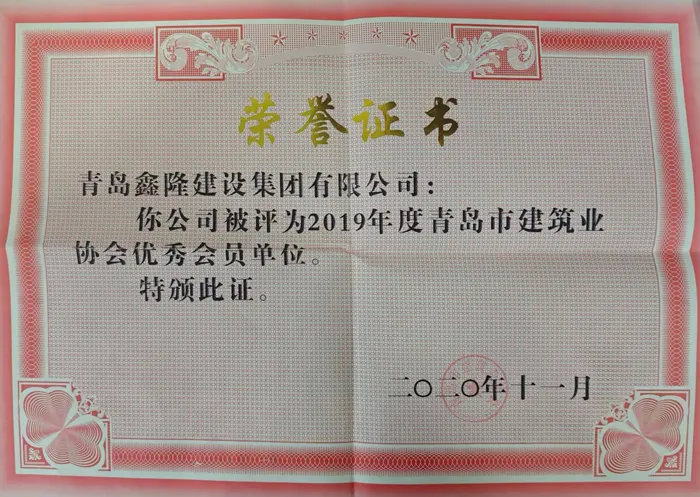 荣誉证书
青岛鑫隆建设集团有限公司：
你公司被评为2019年度青岛市建筑业
协会优秀会员单位。
特颁此证。
二〇二〇年十一月